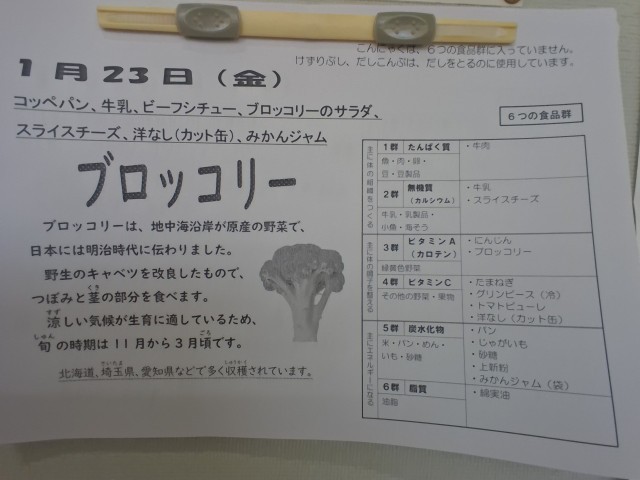 こんにゃくは、6つの食品群に入っていません。
けずりぶし、だしこんぶは、だしをとるのに使用しています。
1月23日(金)
コッペパン、牛乳、ビーフシチュー、ブロッコリーのサラダ、
スライスチーズ、洋なし(カット缶)、みかんジャム
ブロッコリー
ブロッコリーは、地中海沿岸が原産の野菜で、
日本には明治時代に伝わりました。
野生のキャベツを改良したもので、
つぼみと茎の部分を食べます。
くき
涼しい気候が生育に適しているため、
すず
旬の時期は11月から3月頃です。
しゅん
ごろ
北海道、埼玉県、愛知県などで多く収穫されています。
さいたま
しゅうかく
6つの食品群
主に体の組織をつくる
1群 たんぱく質
魚・肉・卵・
豆・豆製品
・牛肉
2群 無機質
(カルシウム)
牛乳・乳製品・
小魚・海そう
・牛乳
・スライスチーズ
主に体の調子を整える
3群 ビタミンA
(カロテン)
緑黄色野菜
・にんじん
・ブロッコリー
4群 ビタミンC
その他の野菜・果物
・たまねぎ
・グリンピース(冷)
・トマトピューレ
・洋なし(カット缶)
主にエネルギーになる
5群 炭水化物
米・パン・めん・
いも・砂糖
・パン
・じゃがいも
・砂糖
・上新粉
・みかんジャム(袋)
6群 脂質
油脂
・綿実油